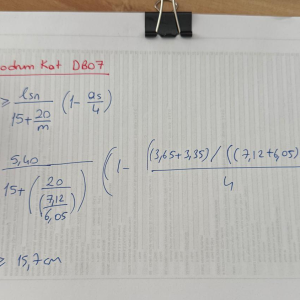 odrum Kat DB07
≥ lsn / (15+20/m) (1- αs/4)
5,40 / (15+(20/(7,12/6,05))) (1- ((3,65+3,35)/((7,12+6,05) / 4
≥ 15,7cm